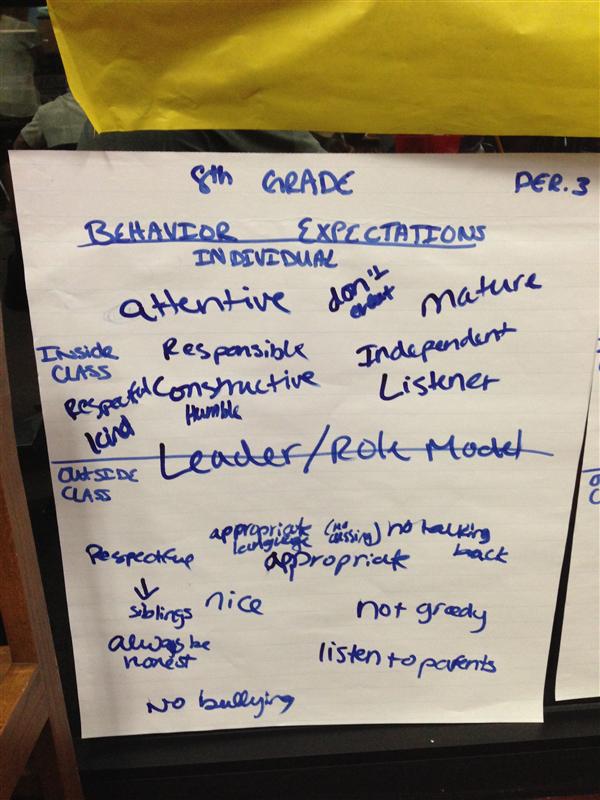 8th GRADE PER.3
BEHAVIOR EXPECTATIONS
INDIVIDUAL
attentive don't cheat mature
INSide CLASS
Responsible Independent
Respectful Constructive Listener
kind Humble
Leader/Role Model
OUTSIDE CLASS
appropriate language (no cussing) no talking back
Respectful appropriate
↓
siblings nice not greedy
always be honest
listen to parents
No bullying